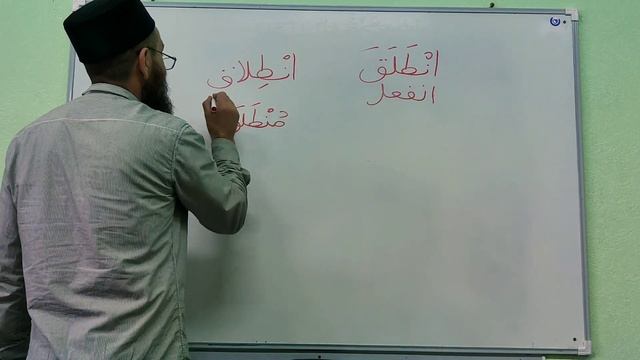 انْطَلَقَ انْطِلَاق
انفعل